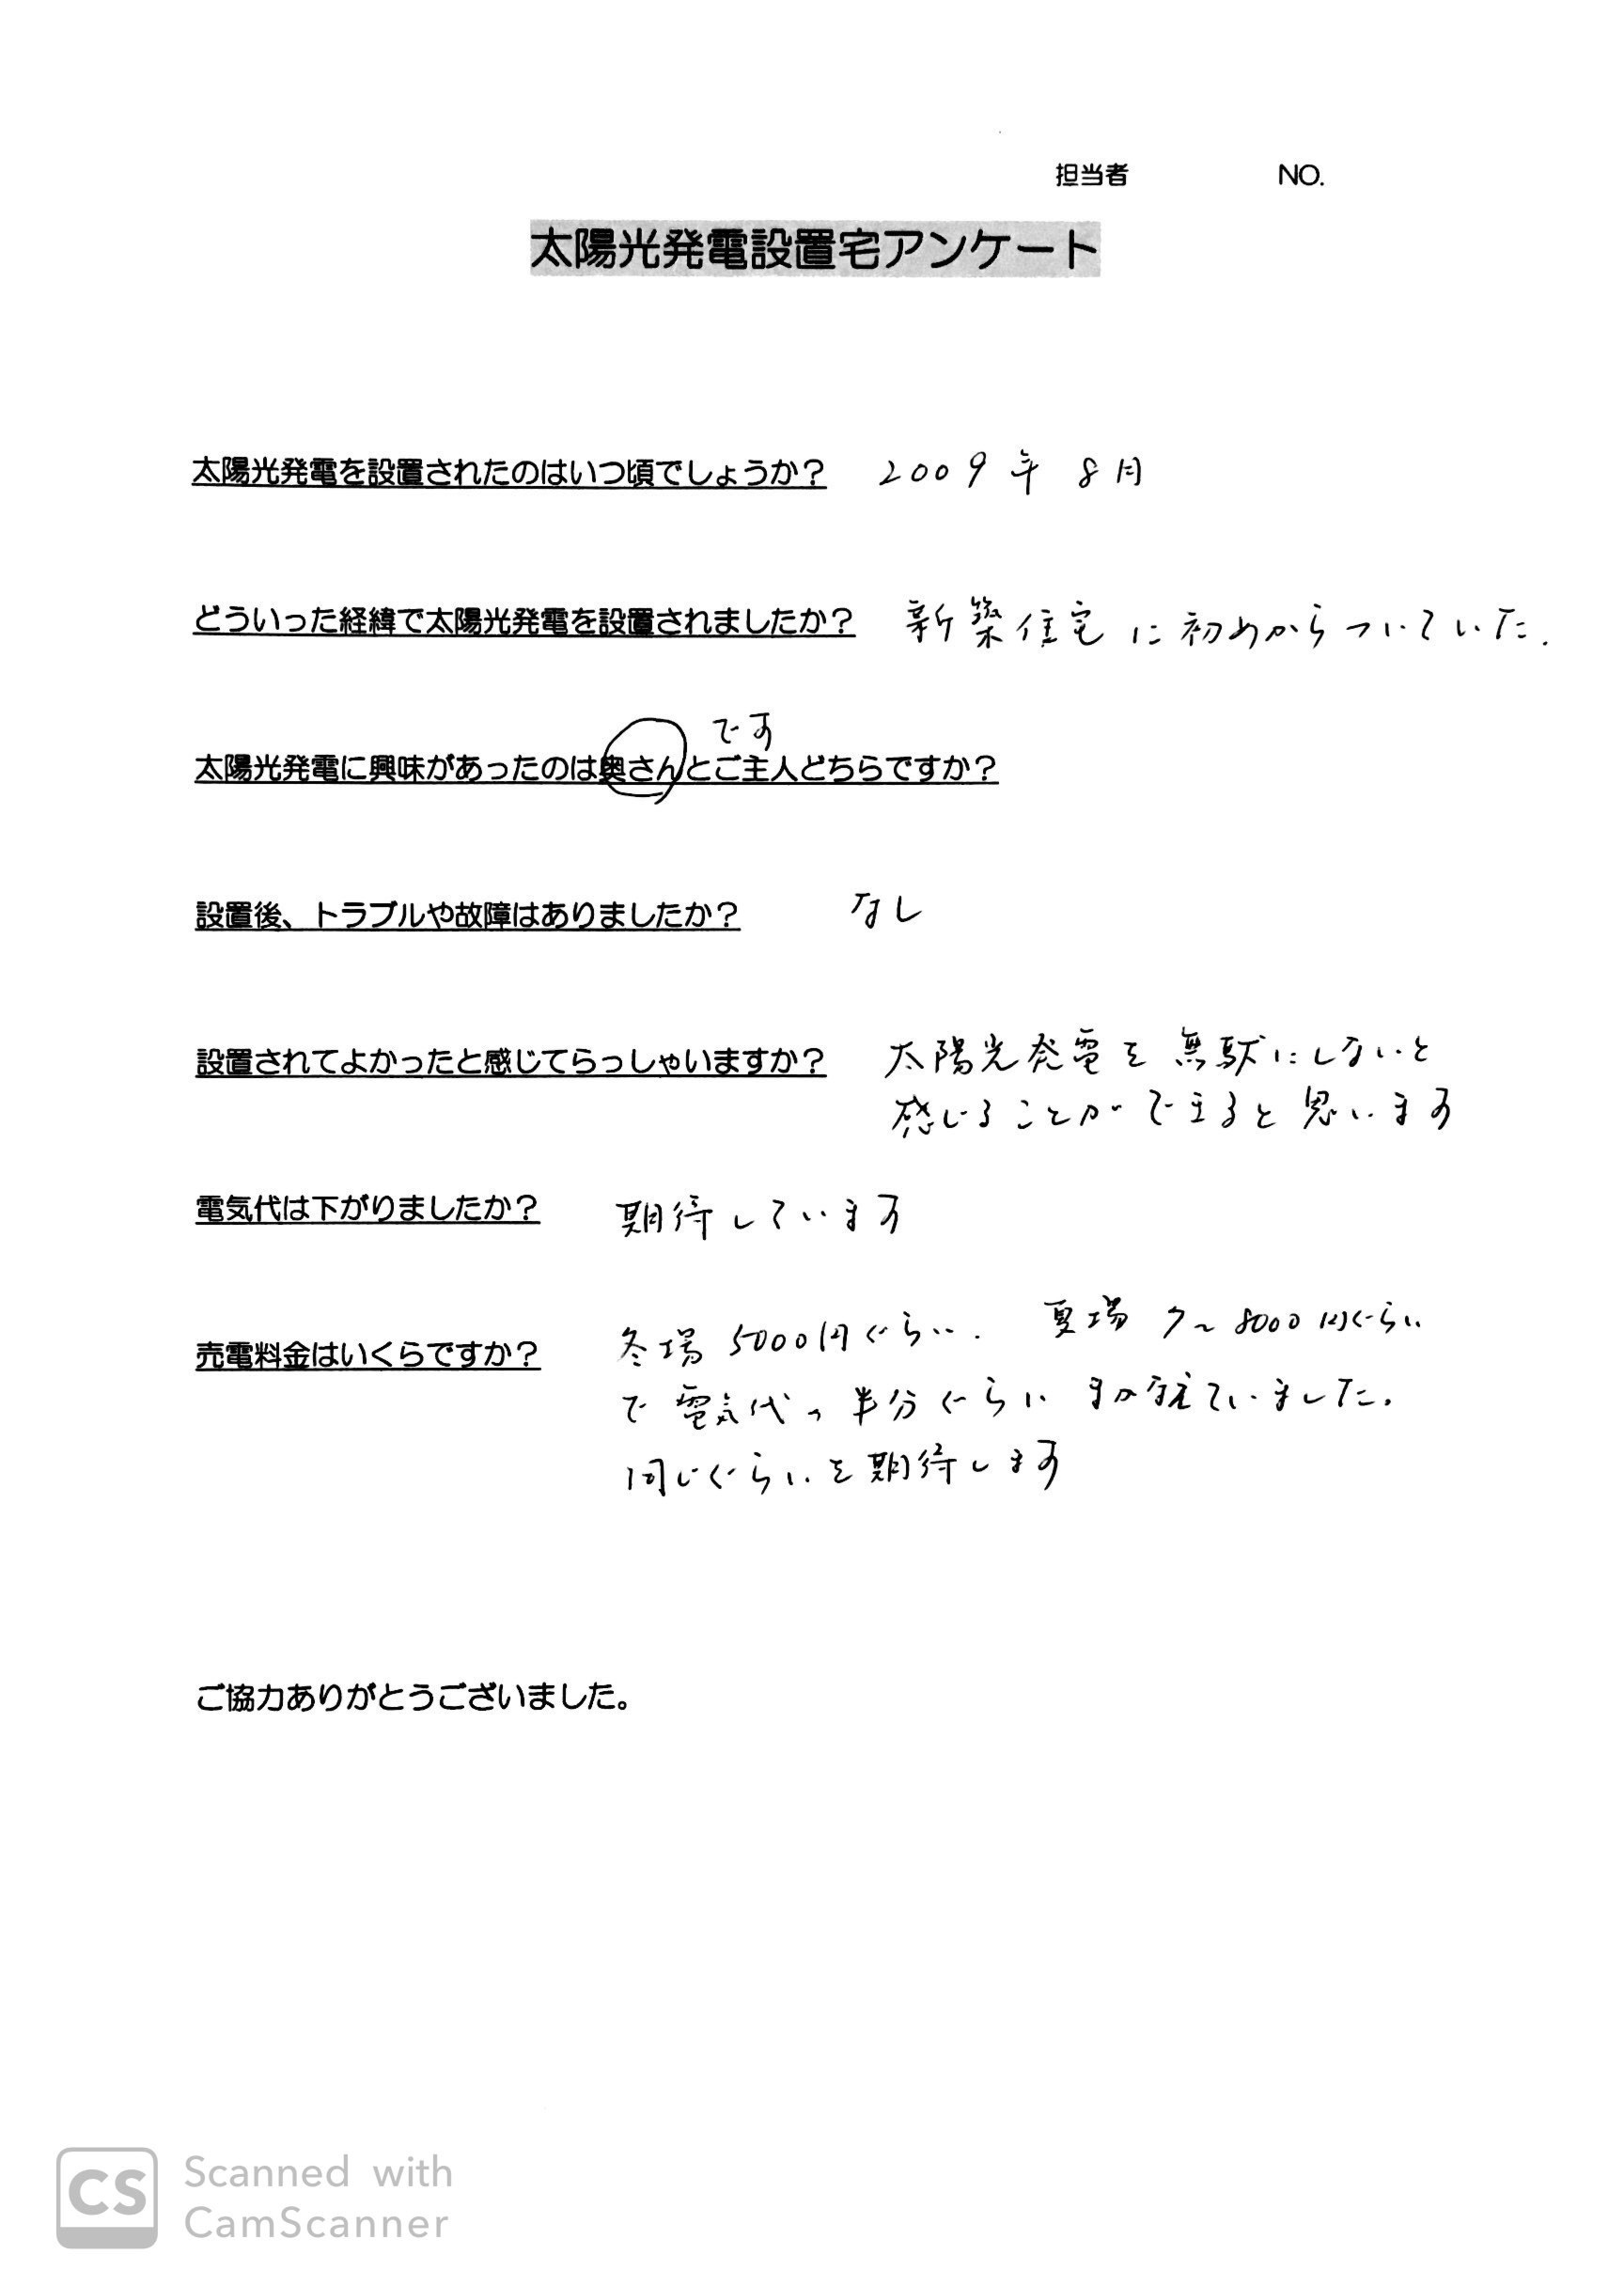 担当者 NO.
太陽光発電設置宅アンケート
太陽光発電を設置されたのはいつ頃でしょうか？ 2009年 8月
どういった経緯で太陽光発電を設置されましたか？ 新築住宅に初めからついていた.
です
太陽光発電に興味があったのは奥さんとご主人どちらですか？
設置後、トラブルや故障はありましたか？ なし
設置されてよかったと感じてらっしゃいますか？ 太陽光発電を無駄にしないと
感じることができると思います
電気代は下がりましたか？ 期待しています
売電料金はいくらですか？ 冬場 5000円ぐらい. 夏場 7～8000円ぐらい
で電気代の半分ぐらいまかなえていました.
同じぐらいを期待します
ご協力ありがとうございました。
CS Scanned with
CamScanner